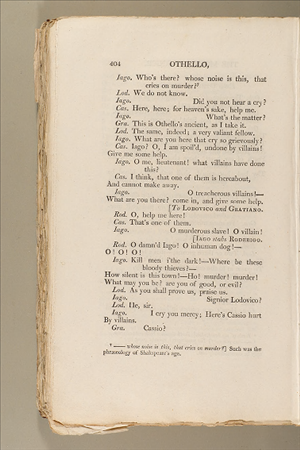 404 OTHELLO,
Iago. Who's there? whose noise is this, that
cries on murder?⁹
Lod. We do not know.
Iago. Did you not hear a cry?
Cas. Here, here; for heaven's sake, help me.
Iago. What's the matter?
Gra. This is Othello's ancient, as I take it.
Lod. The same, indeed; a very valiant fellow.
Iago. What are you here that cry so grievously?
Cas. Iago? O, I am spoil'd, undone by villains!
Give me some help.
Iago. O me, lieutenant! what villains have done
this?
Cas. I think, that one of them is hereabout,
And cannot make away.
Iago. O treacherous villains!—
What are you there? come in, and give some help.
[To LODOVICO and GRATIANO.
Rod. O, help me here!
Cas. That's one of them.
Iago. O murderous slave! O villain!
[IAGO stabs RODERIGO.
Rod. O damn'd Iago! O inhuman dog!—
O! O! O!
Iago. Kill men i'the dark!—Where be these
bloody thieves?—
How silent is this town!—Ho! murder! murder!
What may you be? are you of good, or evil?
Lod. As you shall prove us, praise us.
Iago. Signior Lodovico?
Lod. He, sir.
Iago. I cry you mercy; Here's Cassio hurt
By villains.
Gra. Cassio?
⁹ —— whose noise is this, that cries on murder?] Such was the
phraseology of Shakspeare's age.